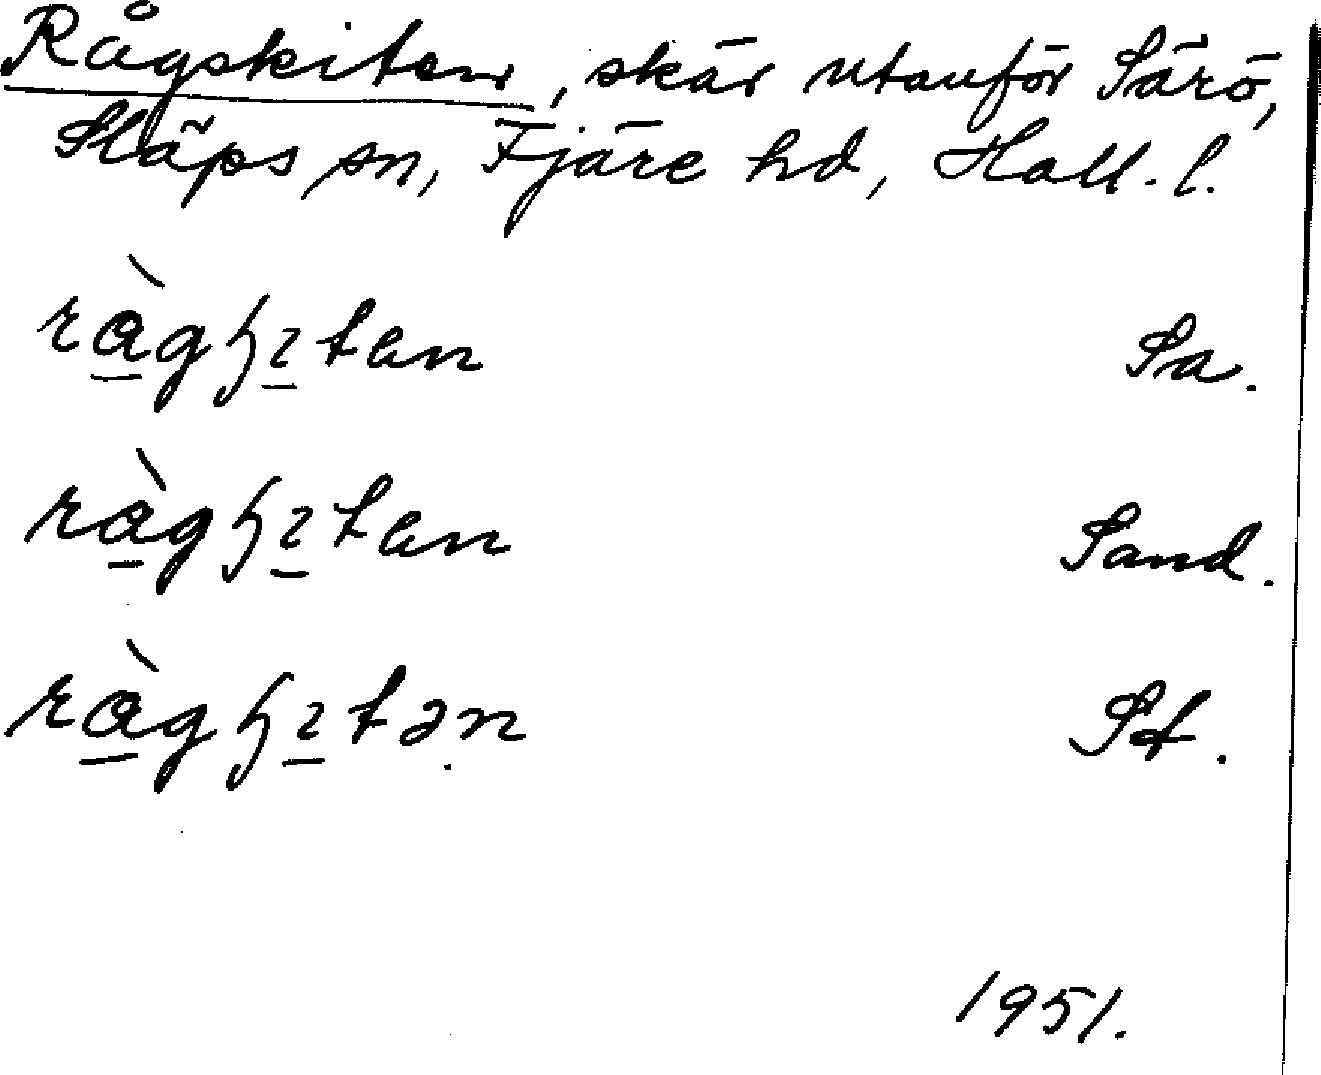 Rågskiten, skär utanför Särö,
Släps sn, Fjäre hd, Hall. l.
ràgɧɿtan Sa.
ràgɧɿtan Sand.
ràgɧɿtən Sf.
1951.